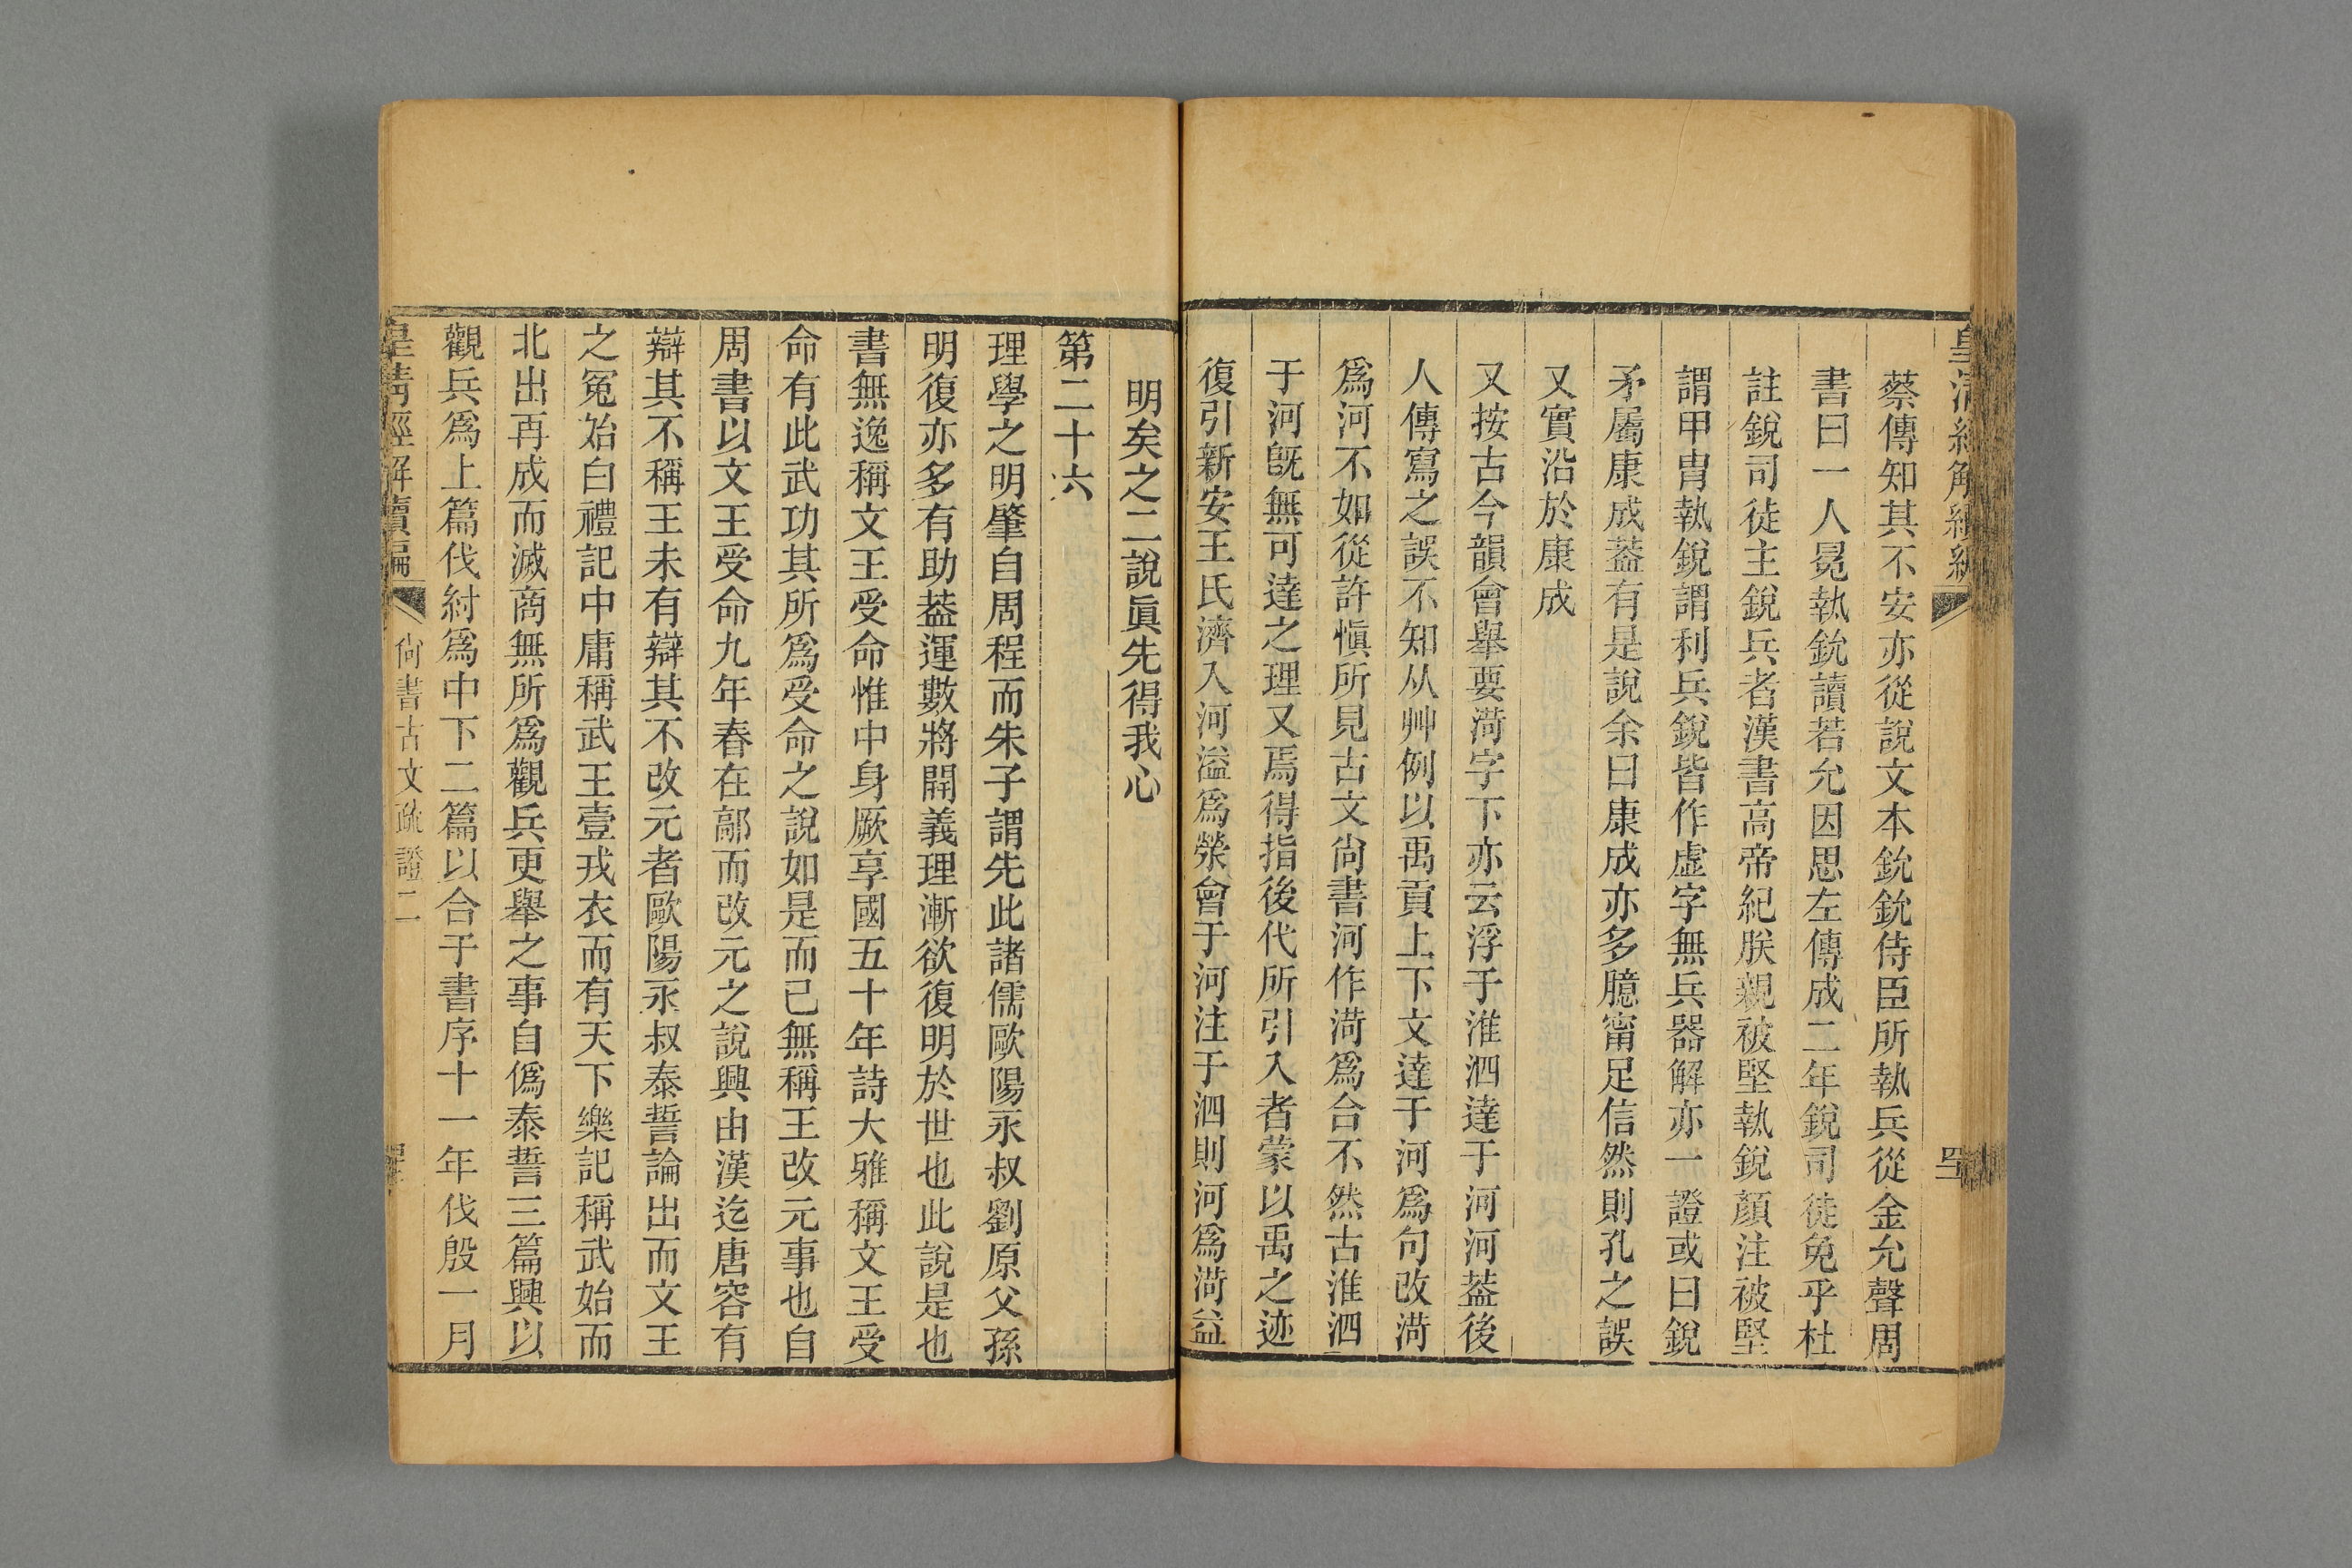 皇清經解續編
蔡傳知其不安亦從說文本鈗鈗侍臣所執兵從金允聲周
書曰一人冕執鈗讀若允因思左傳成二年銳司徒免乎杜
註銳司徒主銳兵者漢書高帝紀朕親被堅執銳顏注被堅
謂甲冑執銳謂利兵銳皆作虛字無兵器解亦一證或曰銳
矛屬康成葢有是說余曰康成亦多臆甯足信然則孔之誤
又實沿於康成
又按古今韻會舉要菏字下亦云浮于淮泗達于河河葢後
人傳寫之誤不知从艸例以禹貢上下文達于河為句改菏
為河不如從許愼所見古文尙書河作菏為合不然古淮泗
于河旣無可達之理又焉得指後代所引入者蒙以禹之迹
復引新安王氏濟入河溢為滎會于河注于泗則河為菏益
明矣之二說眞先得我心
第二十六
理學之明肇自周程而朱子謂先此諸儒歐陽永叔劉原父孫
明復亦多有助葢運數將開義理漸欲復明於世也此說是也
書無逸稱文王受命惟中身厥享國五十年詩大雅稱文王受
命有此武功其所為受命之說如是而已無稱王改元事也自
周書以文王受命九年春在鄗而改元之說興由漢迄唐容有
辯其不稱王未有辯其不改元者歐陽永叔泰誓論出而文王
之冤始白禮記中庸稱武王壹戎衣而有天下樂記稱武始而
北出再成而滅商無所為觀兵更舉之事自僞泰誓三篇興以
觀兵為上篇伐紂為中下二篇以合于書序十一年伐殷一月
皇清經解續編
尙書古文疏證二